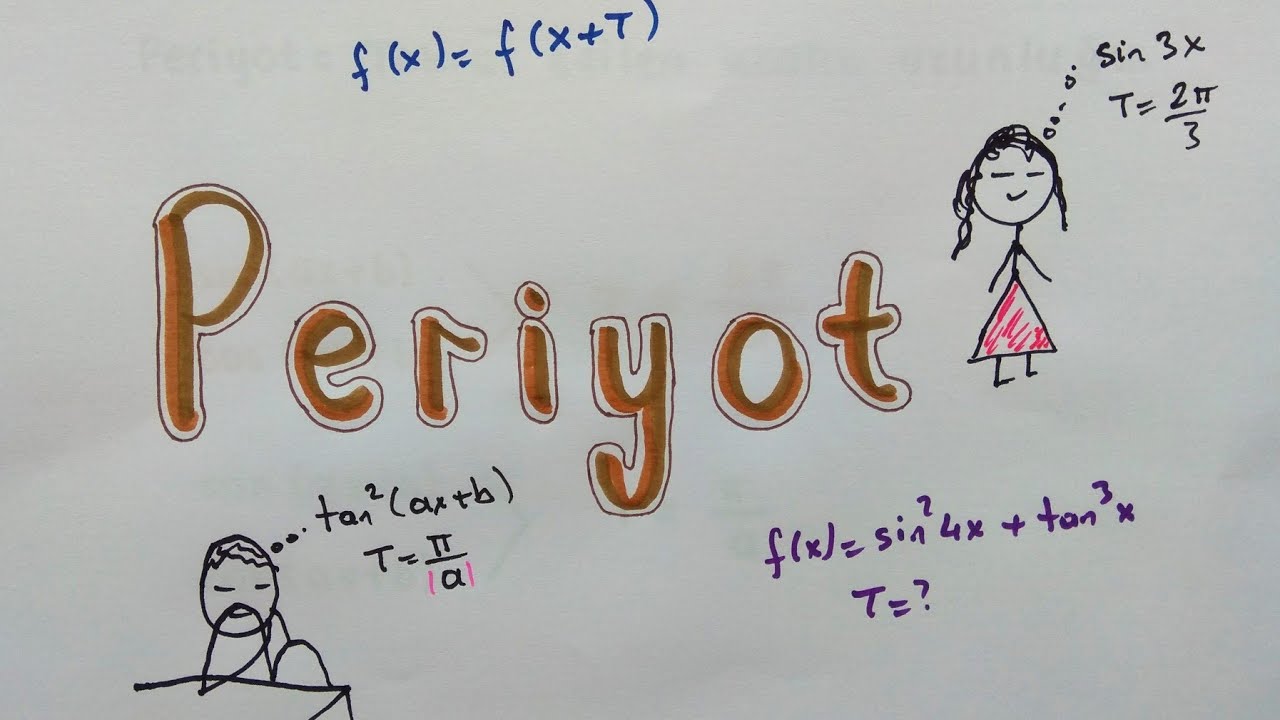 f(x) = f(x+T)
sin 3x
T = 2π/3
Periyot
tan²(ax+b)
T = π/|a|
f(x) = sin²4x + tan³x
T = ?